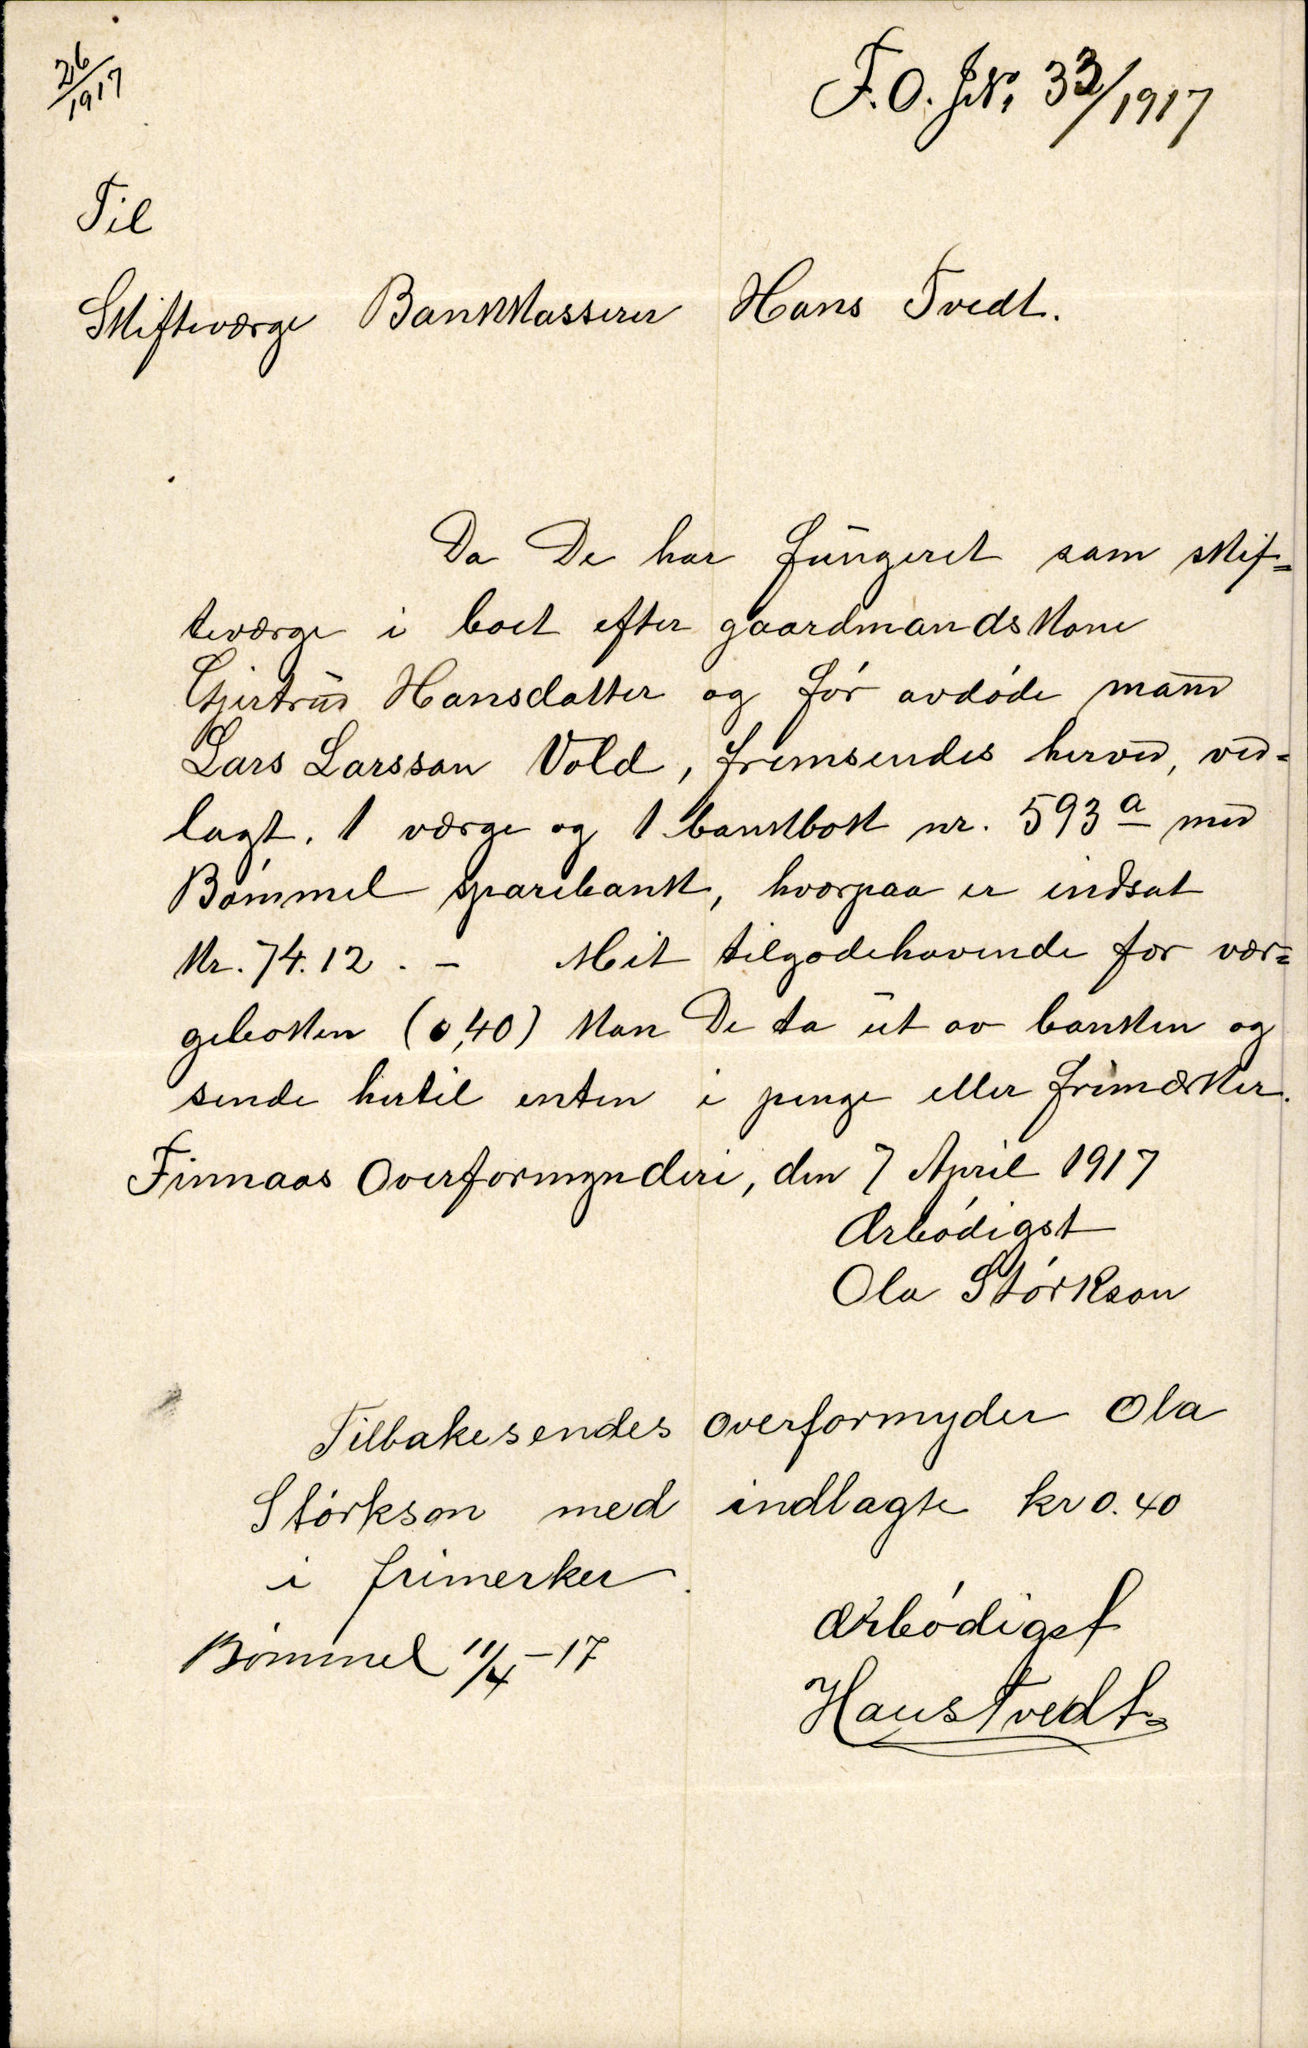 26/1917
F.O. JN. 33/1917
Til
Skifteværge Bankkasserer Hans Tvedt.
Da De har fungeret som skif=
teværge i boet efter gaardmandskone
Gjertrud Hansdatter og før avdøde mand
Lars Larsson Vold, fremsendes herved, ved=
lagt. 1 værge og 1 bankbok nr. 593 a med
Bømmel sparebank, hvorpaa er indsat
Kr. 74.12. - Mit tilgodehavende for vær=
geboken (0,40) kan De ta ut av banken og
sende hertil enten i penge eller frimærker.
Finnaas Overformynderi, den 7 April 1917
Ærbødigst
Ola Størkson
Tilbakesendes overformyder Ola
Størkson med indlagte kr 0.40
i frimerker.
Bømmel 11/4-17
Ærbødigst
Hans Tvedt